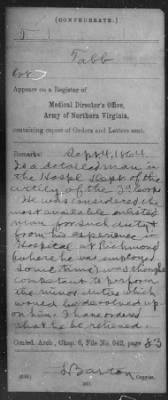 (CONFEDERATE.)
T
Tabb
Appears on a Register of
Medical Director's Office,
Army of Northern Virginia,
containing copies of Orders and Letters sent.
Remarks: Sept 4, 1864
Is a detailed man in
the Hospl Dept of the
artily of the 3d Corps
He was considered the
most available enlisted
for such duty &
from his experience in
Hospital at Richmond
(where he was employed
some time) was thought
competent to perform
the minor duties which
would be devolved up
on him. I have ordered
that he be relieved.
Confed. Arch., Chap. 6, File No. 642, page 83
Barton
(635)
Copyist.